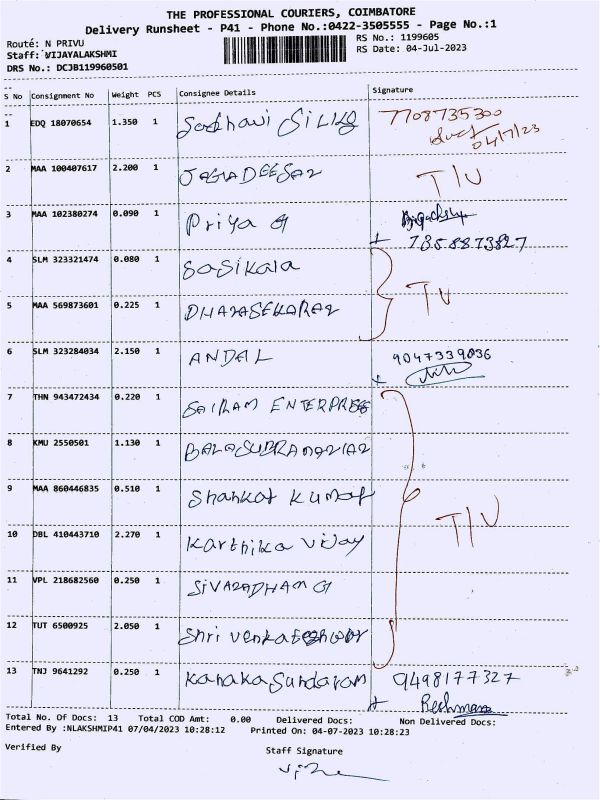 THE PROFESSIONAL COURIERS, COIMBATORE
Delivery Runsheet - P41 - Phone No.:0422-3505555 - Page No.:1
Route: N PRIVU RS No.: 1199605
Staff: VIJAYALAKSHMI RS Date: 04-Jul-2023
DRS No.: DCJB119960501
S No Consignment No Weight PCS Consignee Details Signature
1 EDQ 18070654 1.350 1 7708735300
04/7/23
2 MAA 100407617 2.200 1 JAGADEESAN T/U
3 MAA 102380274 0.090 1 Priya G
7358873827
4 SLM 323321474 0.080 1 Sasikala
5 MAA 569873601 0.225 1 DHANASEKARAN TU
6 SLM 323284034 2.150 1 ANDAL 9047339036
7 THN 943472434 0.220 1 SAIRAM ENTERPRISES
8 KMU 2550501 1.130 1 BALASUBRAMANIAN
9 MAA 860446835 0.510 1 Shankar Kumar
10 DBL 410443710 2.270 1 Karthika Vijay T/U
11 VPL 218682560 0.250 1 SIVANADHAM G
12 TUT 6500925 2.050 1 Shri Venkateshwar
13 TNJ 9641292 0.250 1 Kanaka Sundaram 9498177327
Reshma
Total No. Of Docs: 13 Total COD Amt: 0.00 Delivered Docs: Non Delivered Docs:
Entered By :NLAKSHMIP41 07/04/2023 10:28:12 Printed On: 04-07-2023 10:28:23
Verified By Staff Signature